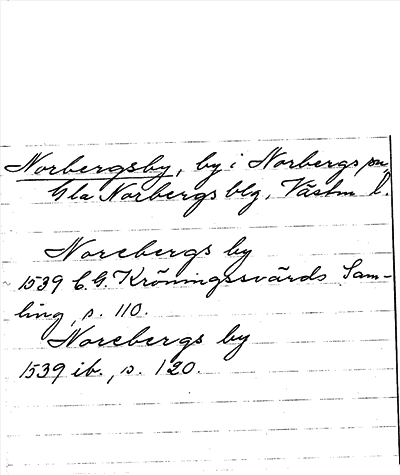 Norbergsby, by i Norbergs sn,
Gla Norbergs blg, Västm l.
Norebergs by
1539 C. G. Kröningssvärds Sam-
ling, s. 110.
Norebergs by
1539 ib., s. 120.